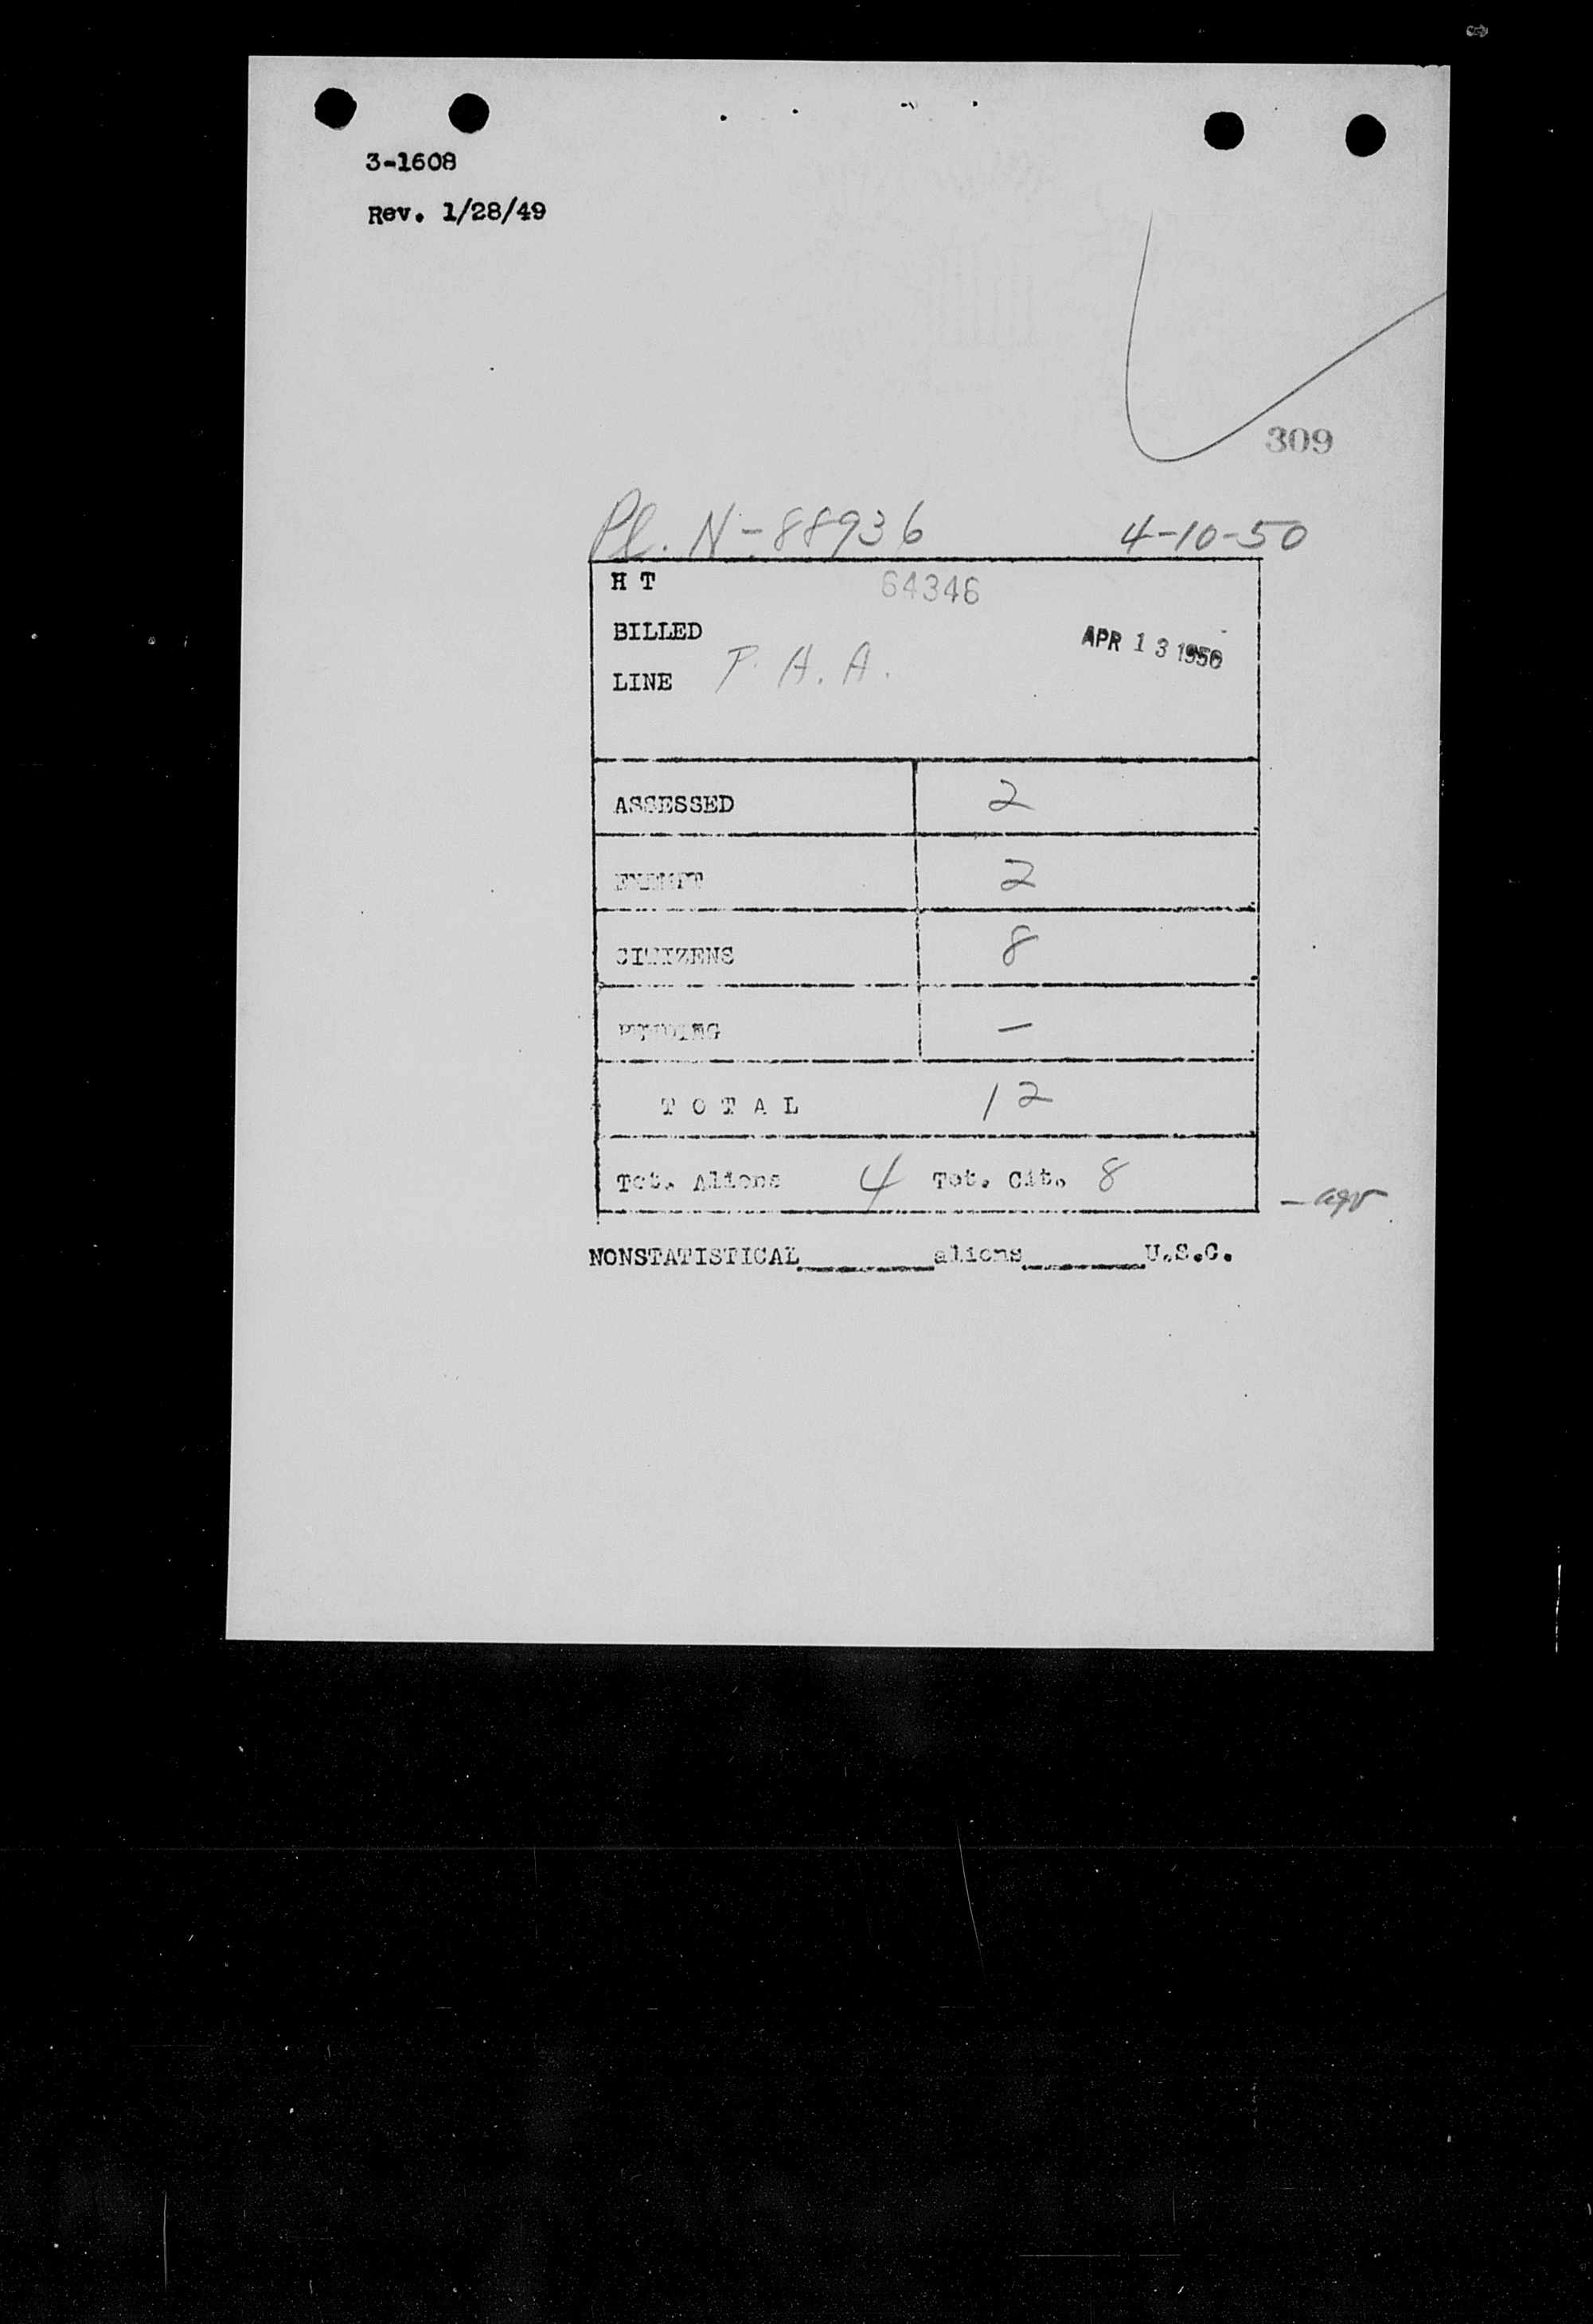 3-1608
Rev. 1/28/49
309
Pl. N-88936 4-10-50
H T 64346
BILLED
APR 13 1950
LINE P. A. A.
ASSESSED 2
EXEMPT 2
CITIZENS 8
PENDING –
T O T A L 12
Tot. Aliens 4 Tot. Cit. 8
NONSTATISTICAL________aliens________U.S.C.